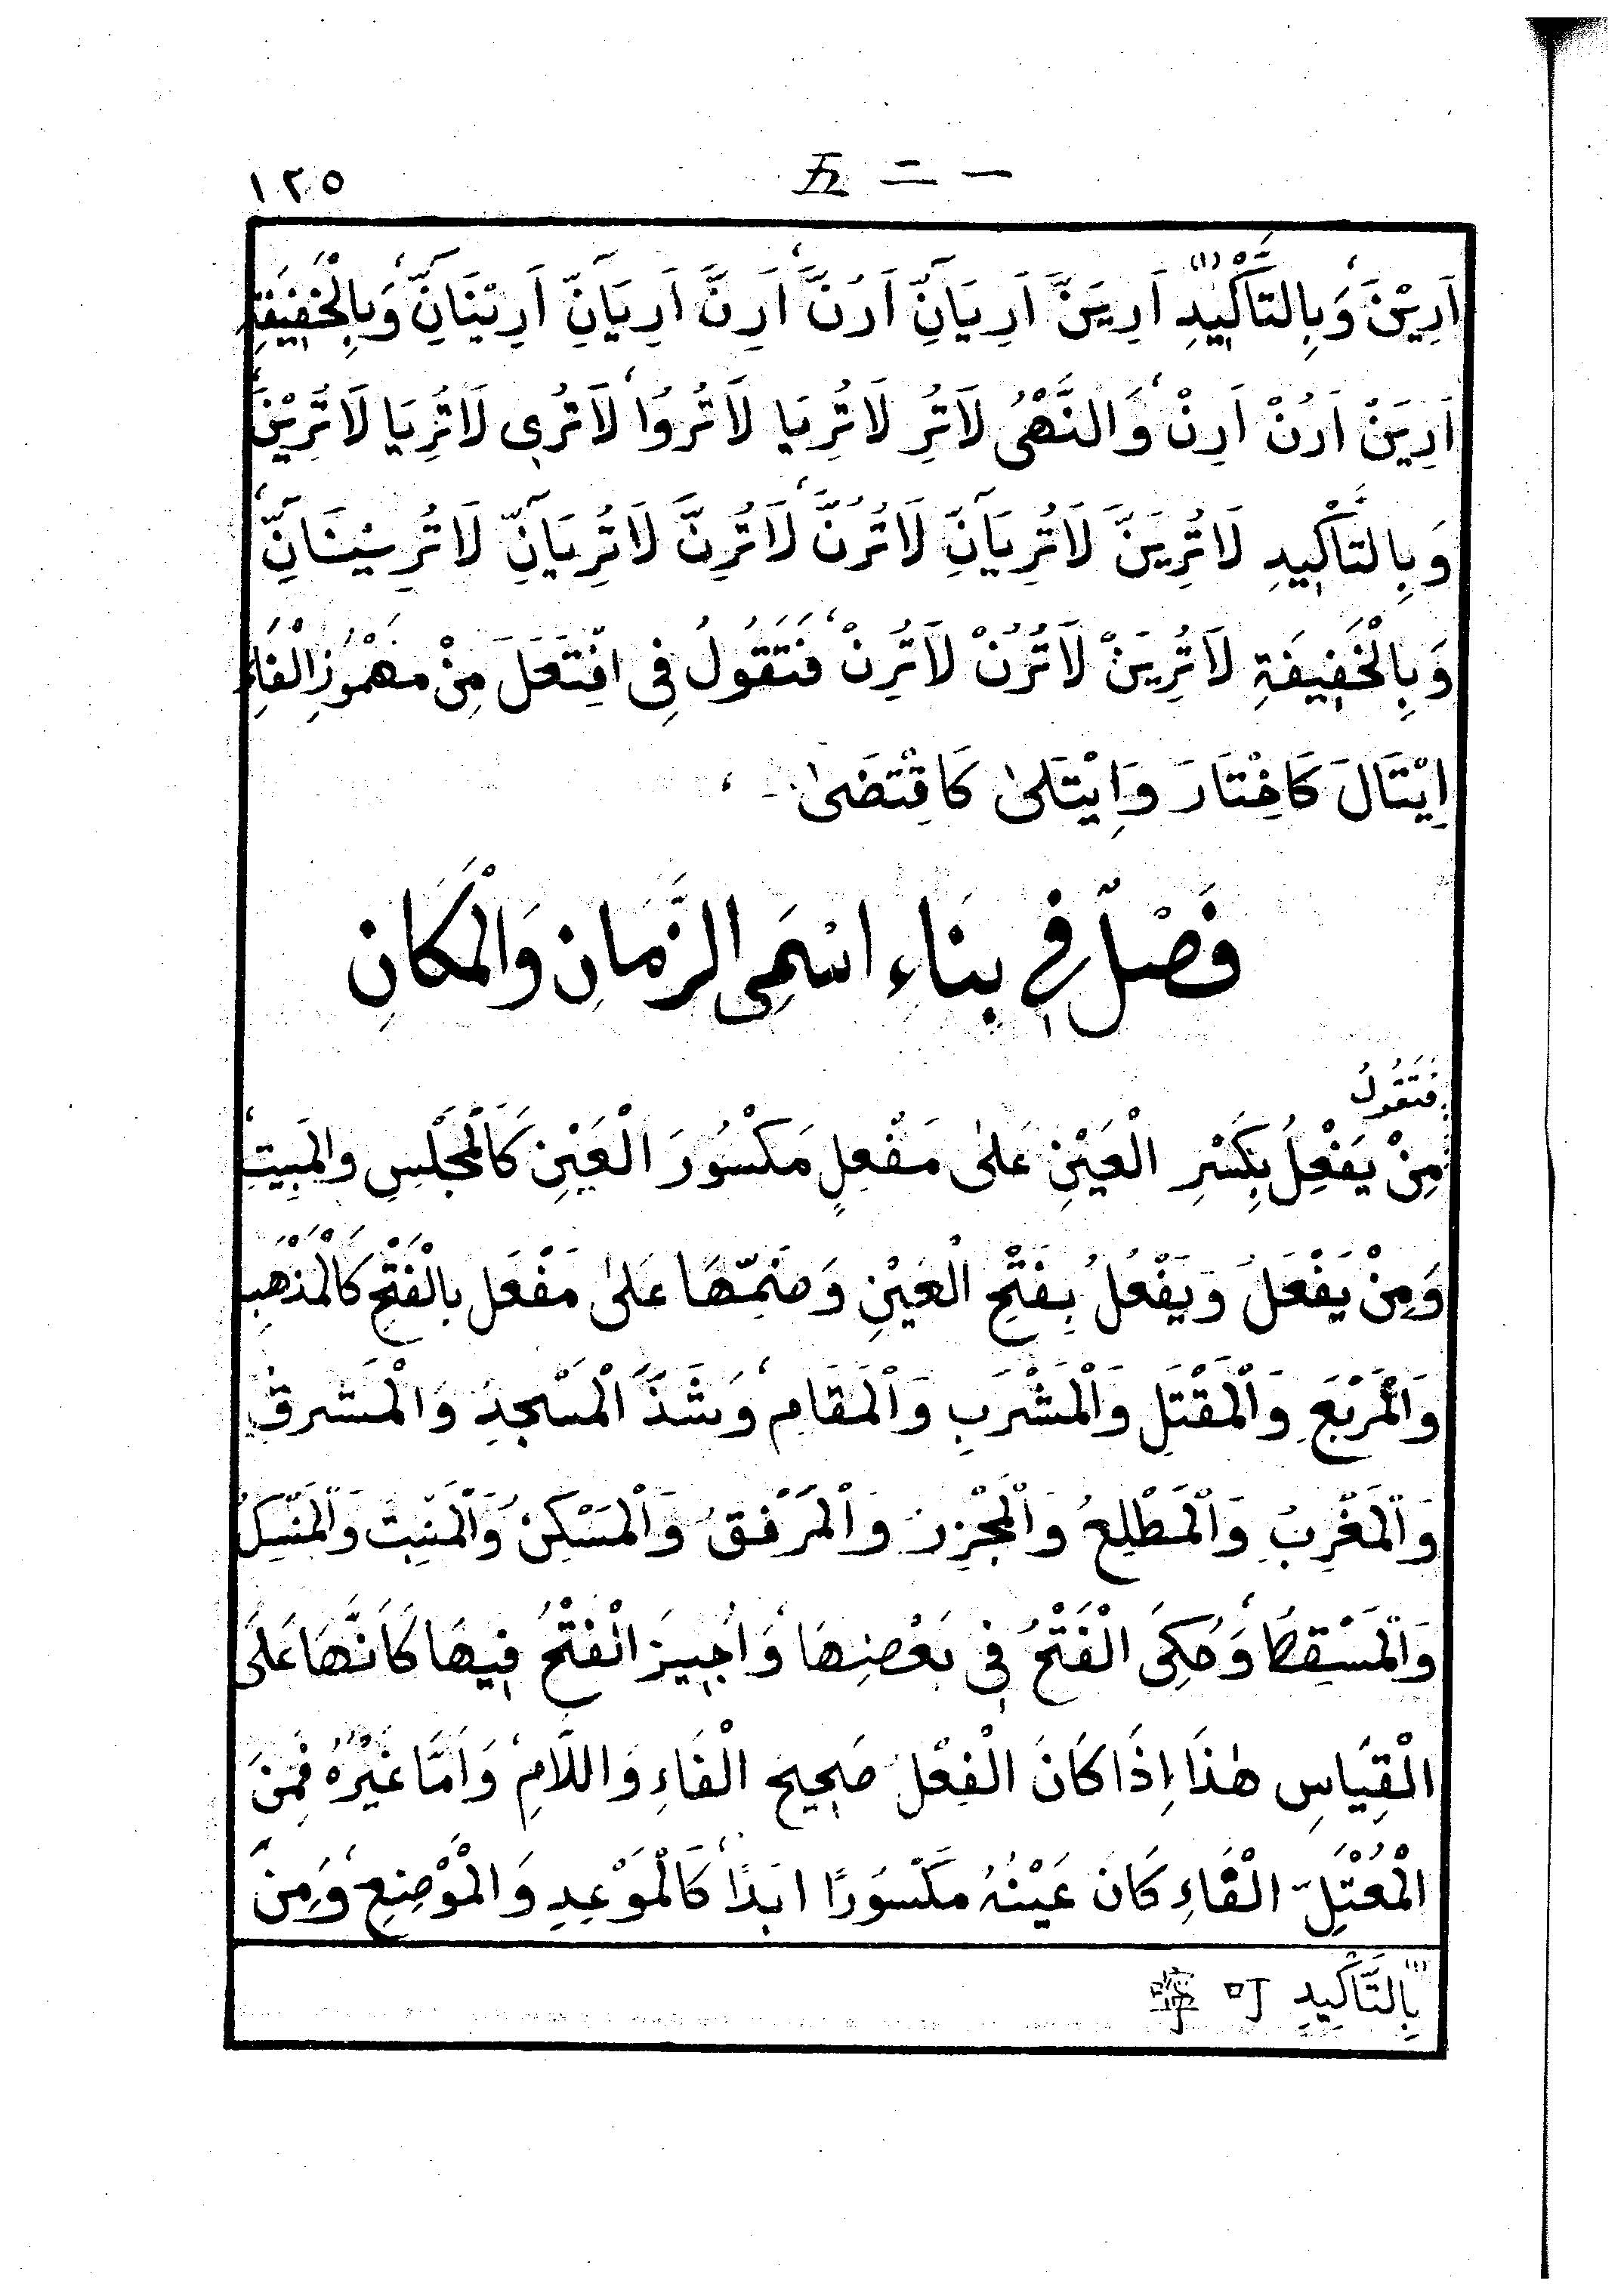 ١٢٥ 五 二 一
اَرِيْنَ وَبِالتَّأْكِيْدِ (١) اَرِيَنَّ اَرِيَانِّ اَرُنَّ اَرِنَّ اَرِيَانِّ اَرِيْنَانِّ وَبِالْخَفِيفَةِ
اَرِيَنْ اَرُنْ اَرِنْ وَالنَّهْىُ لَاتُرِ لَاتُرِيَا لَاتُرُوْا لَاتُرِى لَاتُرِيَا لَاتُرِيْنَ
وَبِالتَّأْكِيدِ لَاتُرِيَنَّ لَاتُرِيَانِّ لَاتُرُنَّ لَاتُرِنَّ لَاتُرِيَانِّ لَاتُرِيْنَانِّ
وَبِالْخَفِيفَةِ لَاتُرِيَنْ لَاتُرُنْ لَاتُرِنْ فَتَقُولُ فِى افْتَعَلَ مِنْ مَهْمُوزِ الْفَاءِ
اِيْتَالَ كَاخْتَارَ وَاِيْتَلىٰ كَاقْتَضىٰ
فَصْلٌ فِي بِنَاءِ اسْمَيِ الزَّمَانِ وَالْمَكَانِ
فَتَقُولُ
مِنْ يَفْعِلُ بِكَسْرِ الْعَيْنِ عَلىٰ مَفْعِلٍ مَكْسُورَ الْعَيْنِ كَالْمَجْلِسِ وَالْمَبِيتِ
وَمِنْ يَفْعَلُ وَيَفْعُلُ بِفَتْحِ الْعَيْنِ وَضَمِّهَا عَلىٰ مَفْعَلٍ بِالْفَتْحِ كَالْمَذْهَبِ
وَالْمَرْبَعِ وَالْمَقْتَلِ وَالْمَشْرَبِ وَالْمَقَامِ وَشَذَّ الْمَسْجِدُ وَالْمَشْرِقُ
وَالْمَغْرِبُ وَالْمَطْلِعُ وَالْمَجْزِرُ وَالْمَرْفِقُ وَالْمَسْكِنُ وَالْمَنْبِتُ وَالْمَنْسِكُ
وَالْمَسْقِطُ وَحُكِىَ الْفَتْحُ فِى بَعْضِهَا وَاُجِيزَ الْفَتْحُ فِيهَا كَاَنَّهَا عَلَى
الْقِيَاسِ هٰذَا اِذَا كَانَ الْفِعْلُ صَحِيحَ الْفَاءِ وَاللَّامِ وَاَمَّا غَيْرُهُ فَمِنَ
الْمُعْتَلِّ الْفَاءِ كَانَ عَيْنُهُ مَكْسُورًا اَبَدًا كَالْمَوْعِدِ وَالْمَوْضِعِ وَمِنَ
(١) بِالتَّأْكِيدِ 可